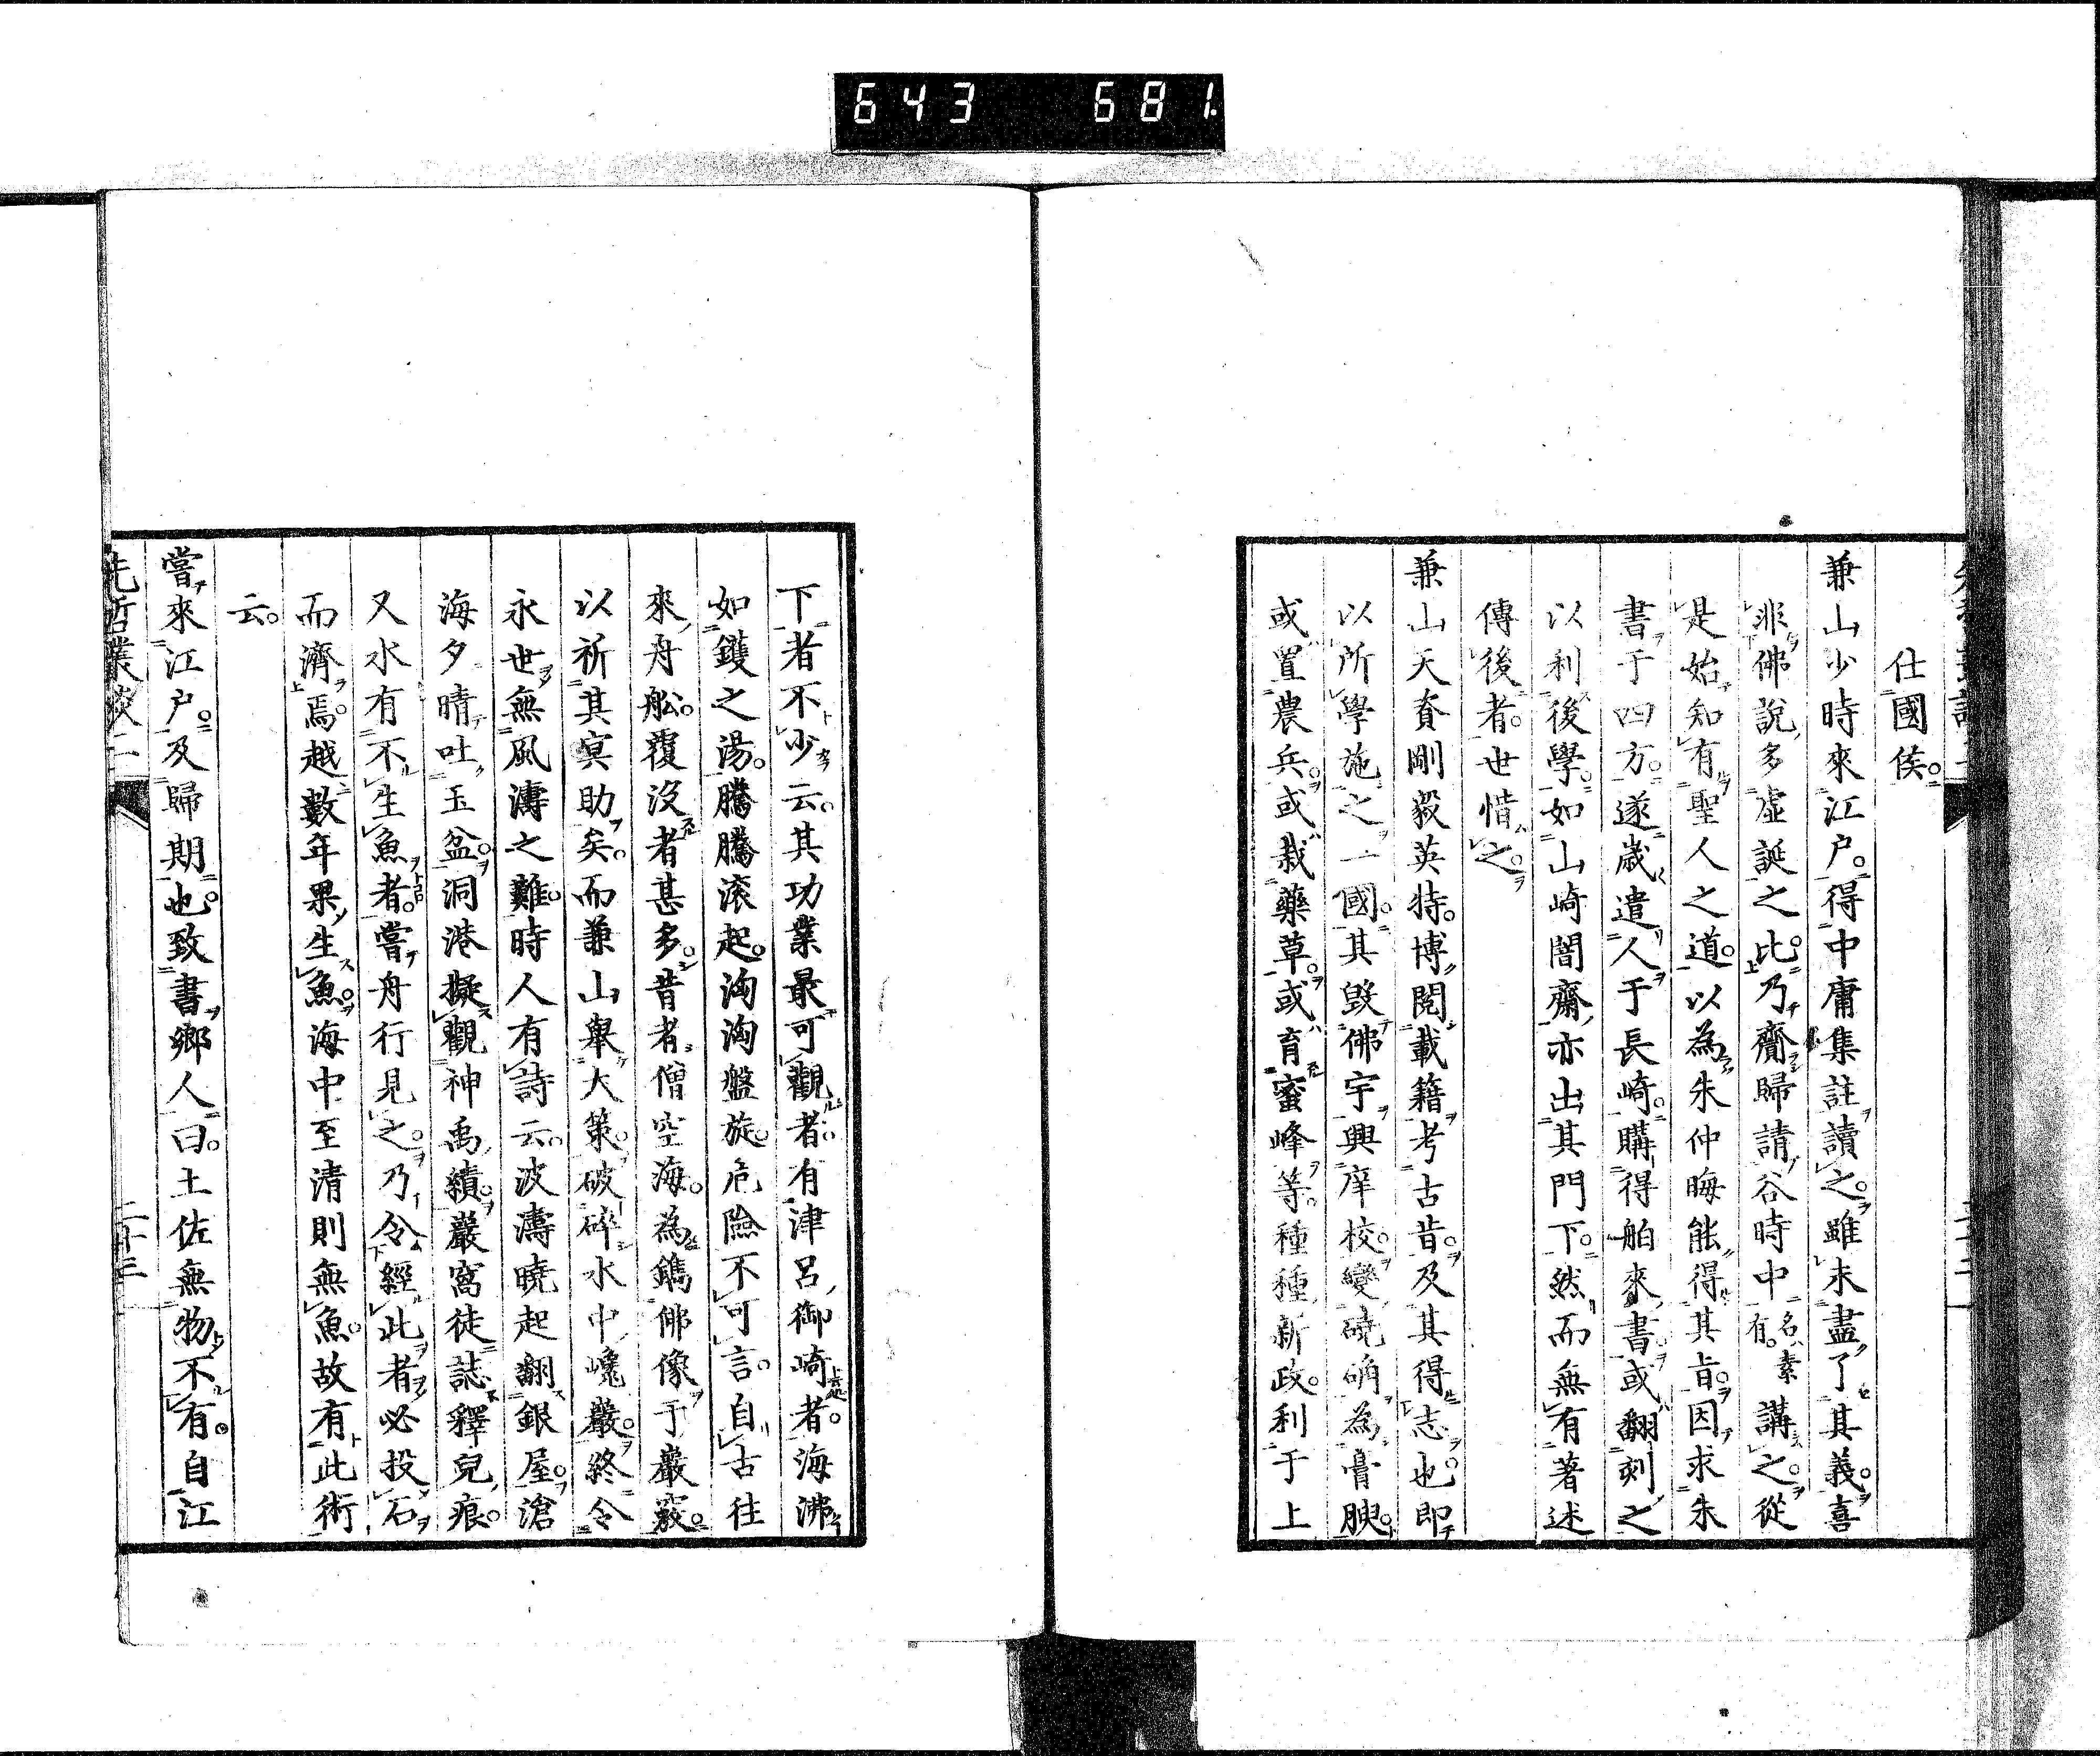 643 681
仕國侯。
兼山少時來江戸。得中庸集註讀之。雖未盡了其義。喜
非佛說多虛誕之比。乃齎歸請谷時中名素有。講之。從
是始知有聖人之道。以為朱仲晦能得其旨。因求朱
書于四方。遂歲遣人于長崎。購得舶來書。或翻刻之
以利後學。如山崎闇齋亦出其門下。然而無有著述
傳後者。世惜之。
兼山天資剛毅英特。博閱載籍考古昔。及其得志也。即
以所學施之一國。其毀佛宇興庠校。變磽确為膏腴。
或置農兵。或栽藥草。或育蜜蜂等。種種新政。利于上
下者不少云。其功業最可觀者。有津呂御崎者。海沸
如鑊之湯。騰騰滾起。洶洶盤旋。危險不可言。自古往
來舟舩。覆沒者甚多。昔者僧空海。為鐫佛像于巖竅。
以祈其冥助矣。而兼山舉大策。破碎水中巉巖。終令
永世無風濤之難。時人有詩云。波濤曉起翻銀屋。滄
海夕晴吐玉盆。洞港擬觀神禹績。巖窩徒誌釋兒痕。
又水有不生魚者。嘗舟行見之。乃令經此者必投石
而濟焉。越數年果生魚。海中至清則無魚。故有此術
云。
嘗來江戸。及歸期也。致書鄉人曰。土佐無物不有。自江
先哲叢談二
二十三